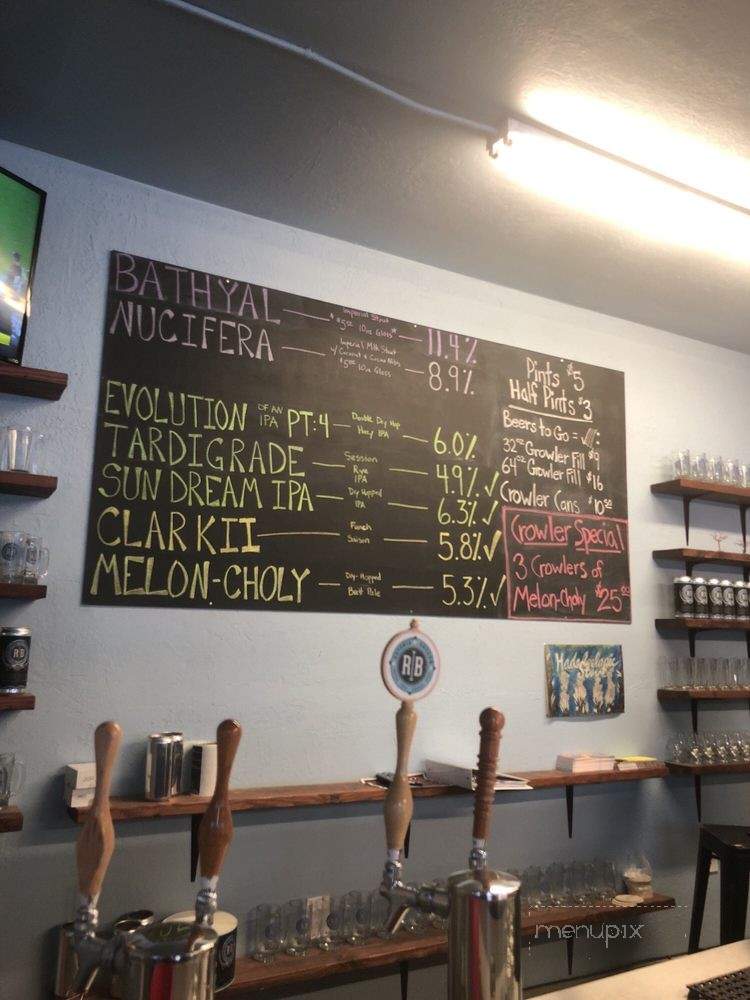 BATHYAL — Imperial Stout — 11.4%
$5.00 10oz Glass
NUCIFERA — Imperial Milk Stout — 8.9%
w/ Coconut & Cacao Nibs
$5.00 10oz Glass
EVOLUTION OF AN IPA PT:4 — Double Dry Hop — 6.0%
Hazy IPA
TARDIGRADE — Session Rye IPA — 4.9% ✓
SUN DREAM IPA — Dry Hopped IPA — 6.3% ✓
CLARK II — Saison — 5.8% ✓
MELON-CHOLY — Dry-Hopped — 5.3% ✓
Brett Pale
Pints $5
Half Pints $3
Beers to Go = ✓
32oz Growler Fill $9
64oz Growler Fill $16
Crowler Cans $10.50
Crowler Special
3 Crowlers of
Melon-Choly $25.00
RB
menupix